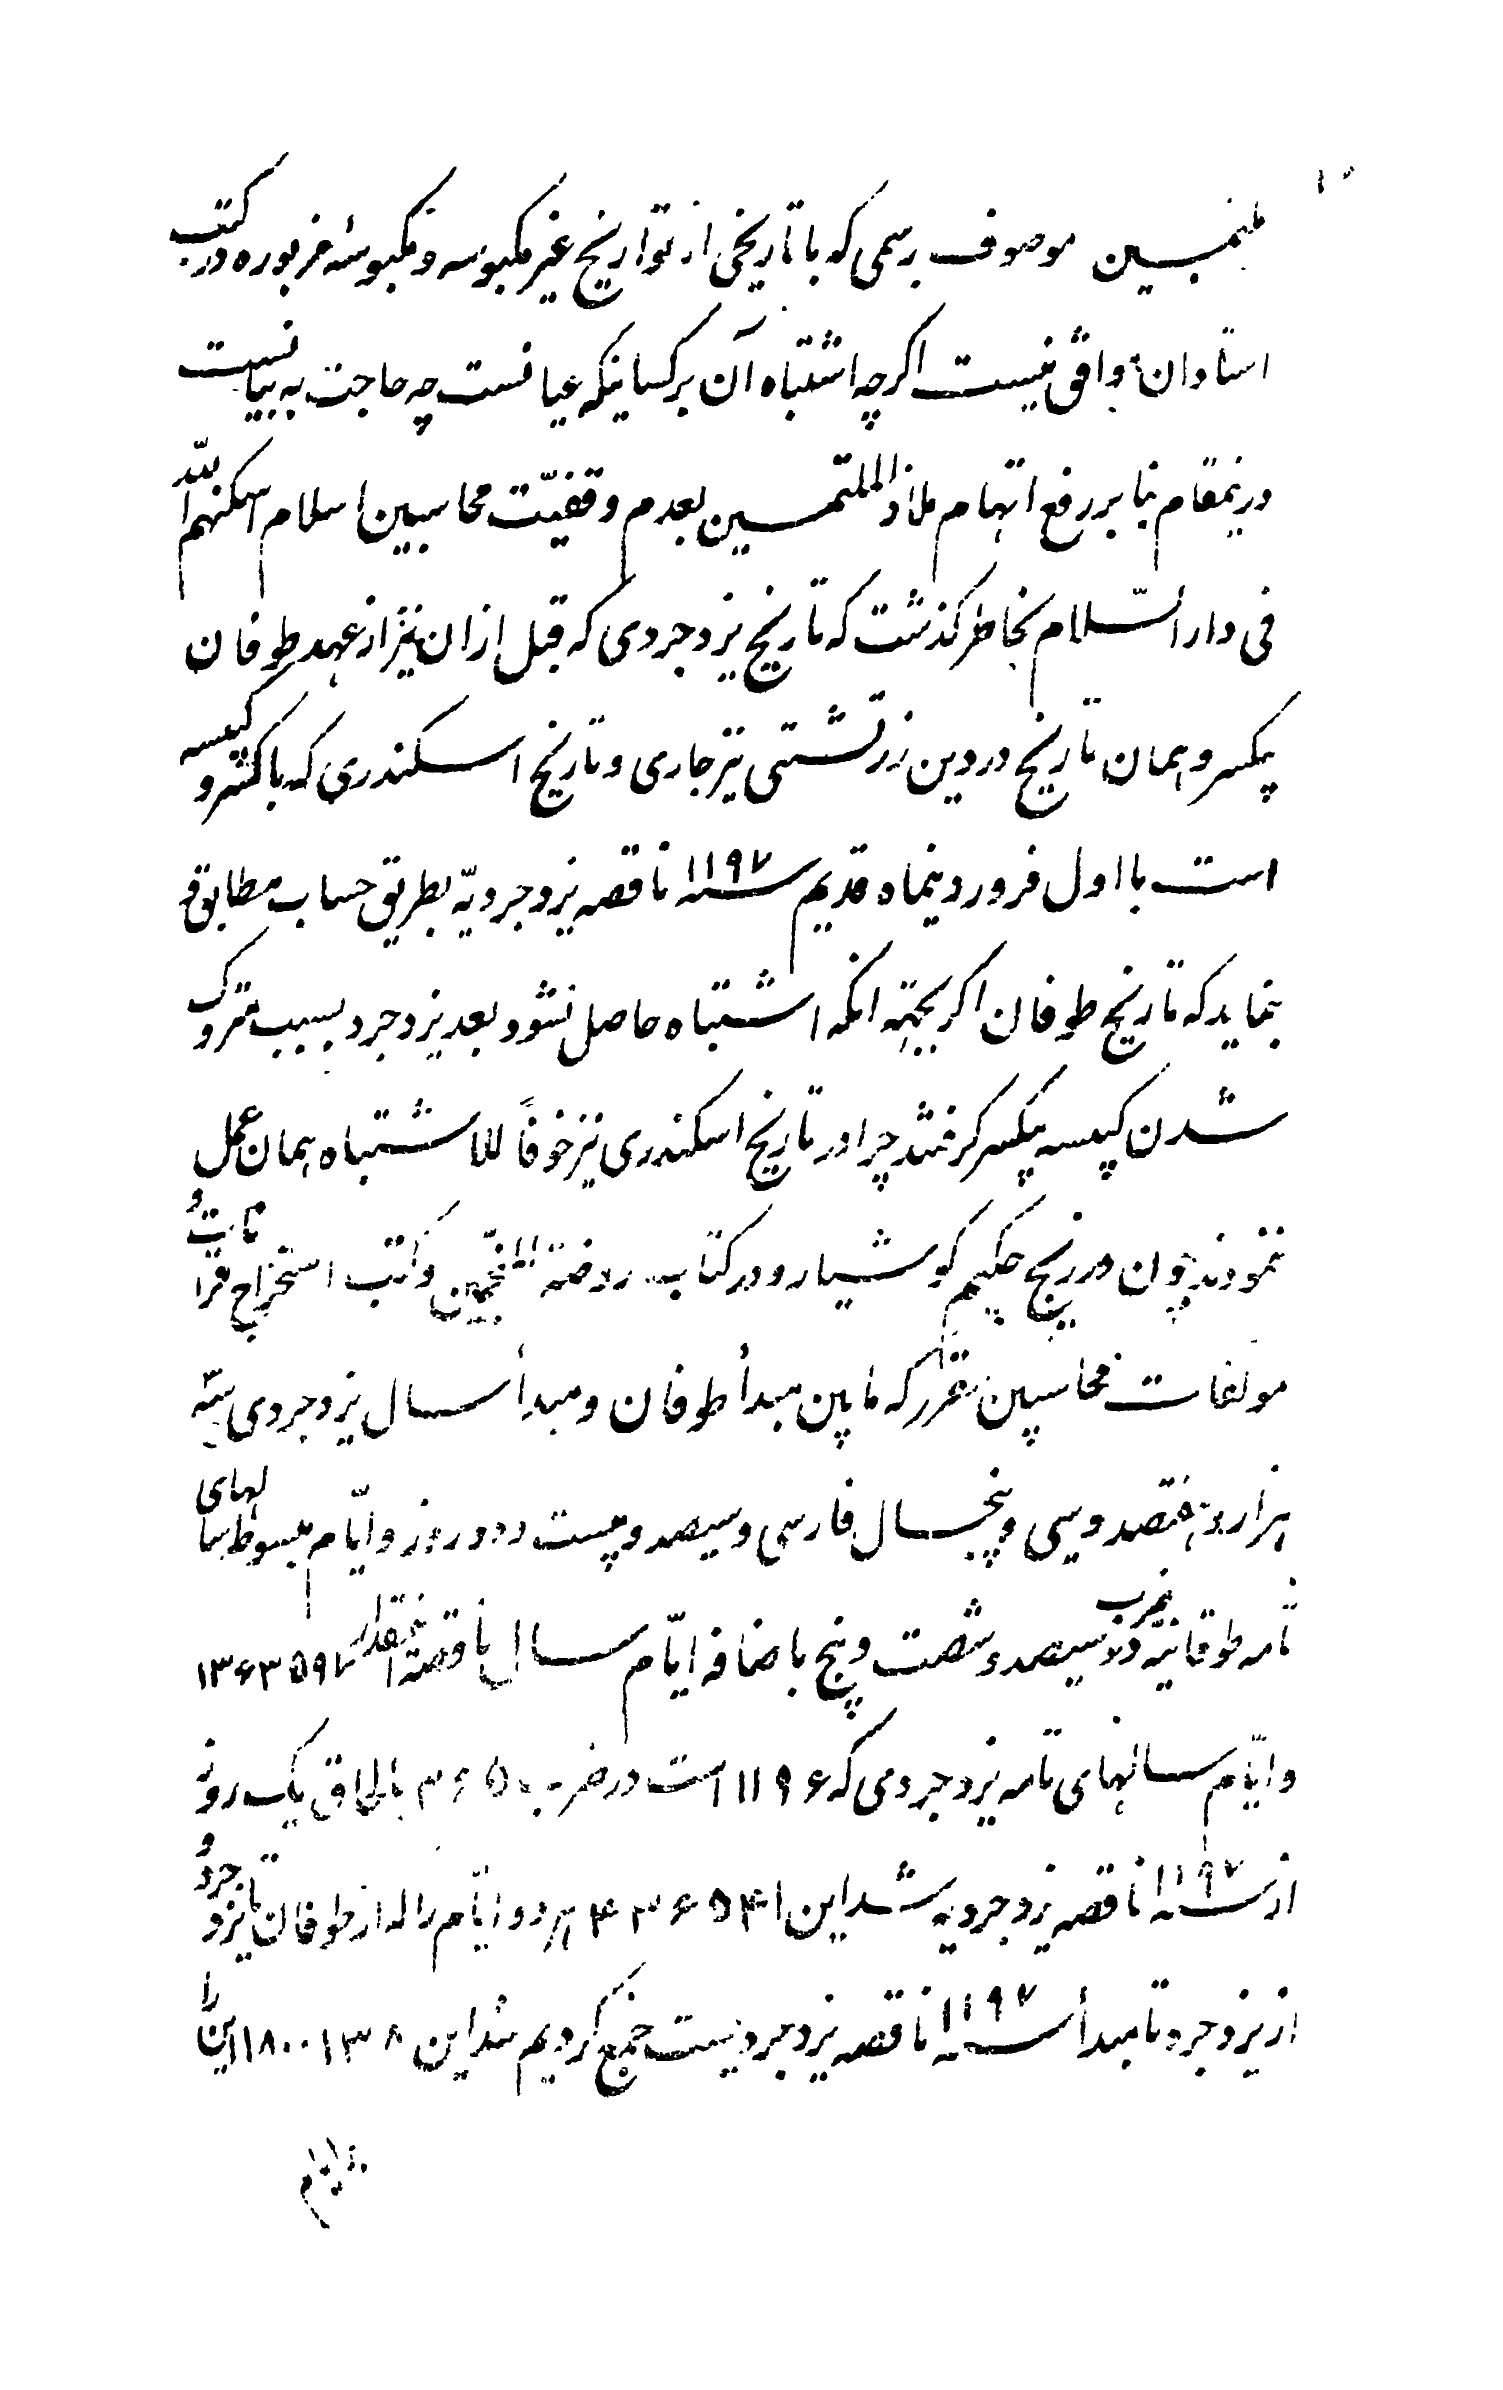 ۱۰
ملتمسین موصوف رسمی که با تاریخی از تواریخ غیر مکبوسه و مکبوسهٔ مزبوره در کتب
استادان وافی نیست اگرچه اشتباه آن بر کسانیکه عیانست چه حاجت به بیانست
درینمقام بنا بر رفع اتهام ملاذ الملتمسین بعدم وقفیّت محاسبین اسلام اسکنهم الله
فی دار السّلام بخاطر گذشت که تاریخ یزدجردی که قبل ازان نیز از عهد طوفان
بیکسر و همان تاریخ در دین زرتشتی نیز جاری و تاریخ اسکندری که با کسر و کبیسه
است با اول فروردینماه قدیم سنه ۱۱۹۷ ناقصه یزدجردیّه بطریق حساب مطابق
بنماید که تاریخ طوفان اگر بجهته انکه اشتباه حاصل نشود بعد یزدجرد بسبب متروک
شدن کبیسه بیکسر گرفتند چرا در تاریخ اسکندری نیز خوفاً للاشتباه همان عمل
ننمودند چون در زیج حکیم کوشیار و در کتاب روضة المنجّمین و کتب استخراج قرانات و
مولفات محاسبین مقرر که مابین مبدأ طوفان و مبدأ سال یزدجردی سه
هزار و هفتصد و سی و پنجسال فارسی و سیصد و بیست و دو روز و ایّام مبسوط سالهای
تامه طوفانیّه در سیصد و شصت و پنج باضافه ایّام سال ناقصه ۱۳۶۳۵۹۷
و ایّام سالهای تامه یزدجردی که ۱۱۹۶ است در ضرب ۳۶۵ بالحاق یک روز
از سنه ۱۱۹۷ ناقصه یزدجردیه شد این ۴۳۶۵۴۱ هر دو ایّام را که از طوفان تا یزدجرد و
از یزدجرد تا مبدأ سنه ۱۱۹۷ ناقصه یزدجردیست جمع کردیم شد این ۱۸۰۰۱۳۸ این را